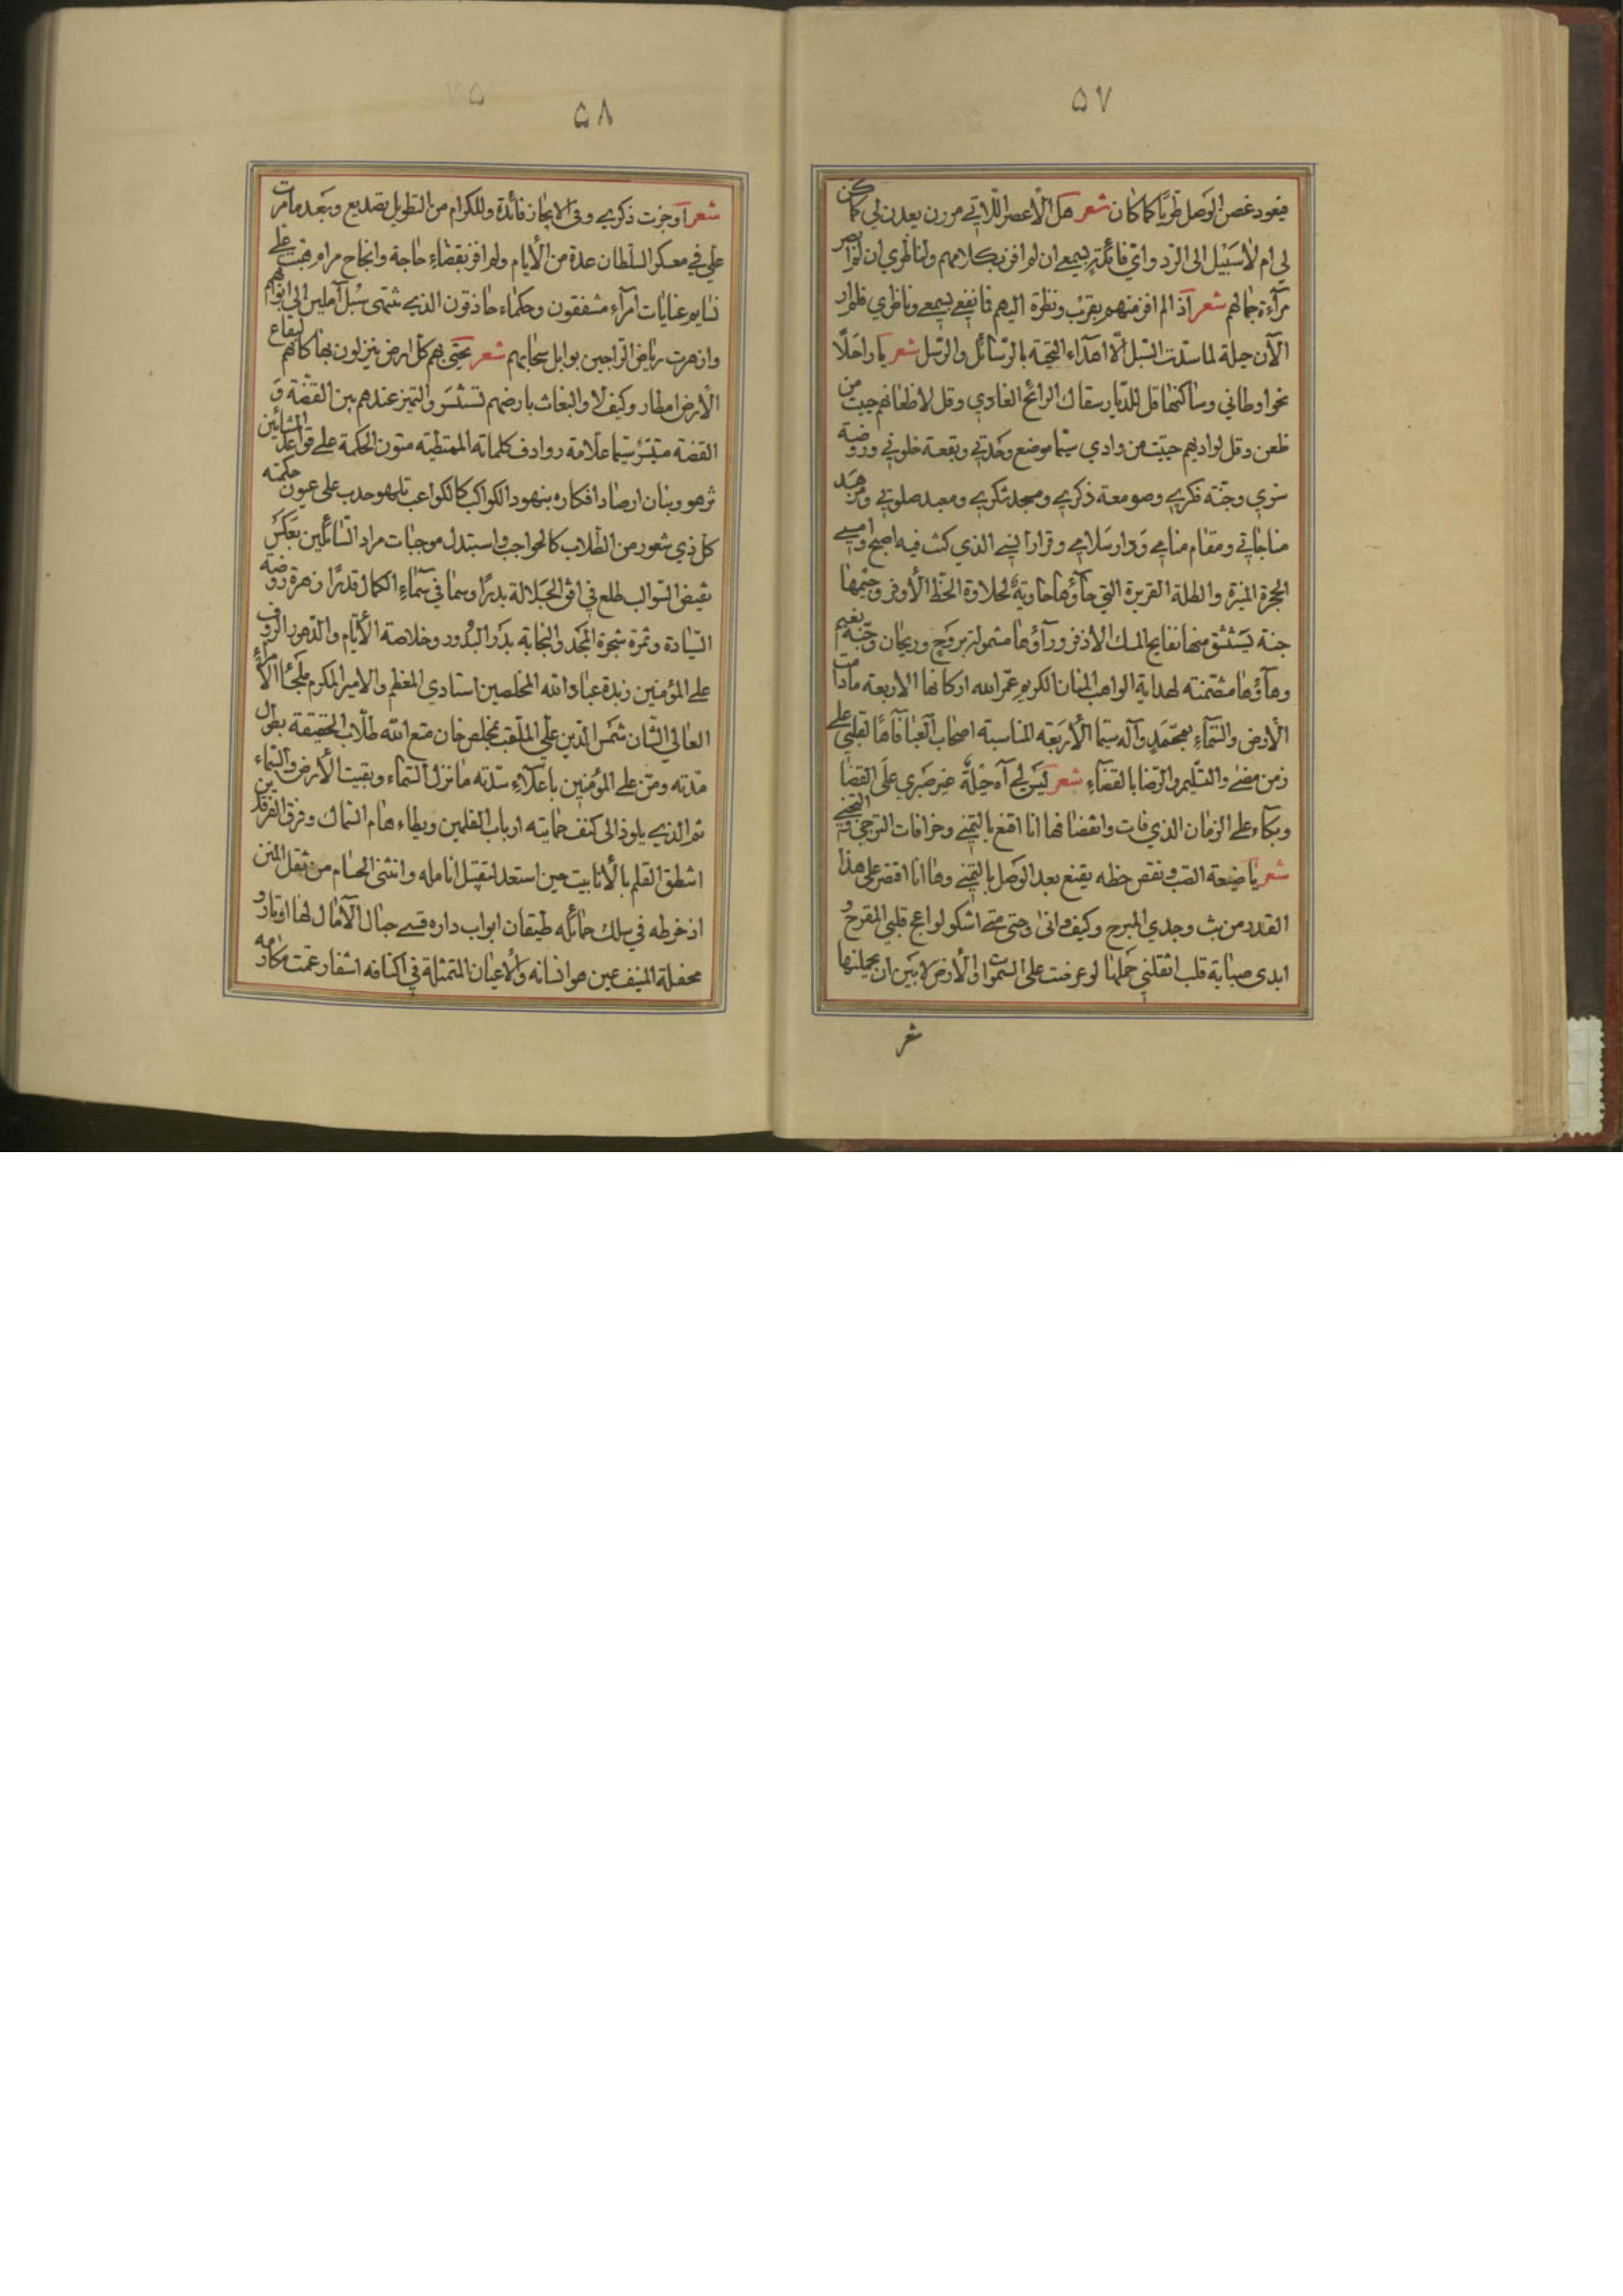 ۵۷
فيعود غصن الوصل طريًا كما كان شعر هل الأعصر اللاتي مررن يعدن لي كما كن
لي ام لا سبيل الى الرد واي فائدة بسمعي ان لم افز بكلامهم ولناظري ان لم ار بصر
مرآءة جمالهم شعر اذ الم افز منهم بقرب ونظرة اليهم فما نفعي بسمعي وناظري فلم ار
الآن حيلة لما سدت السبل الا اهداء التحية بالرسائل والرسل شعر يا راحلًا
نحو اوطاني وساكنها قل للديار سقاك الرائح الغادي وقل لاظعانهم حييت من
ظعن وقل لواديهم حييت من وادي سيما موضع وحدتي وبقعة خلوتي وروضة
وجنة فكري وصومعة ذكري ومسجد شكري ومعبد صلوتي
مناجاتي ومقام منامي ودار سلامي وقرار انسي الذي كنت فيه اصبح وامسي
الحجرة المنيرة والطلة القريرة التي حاؤها حاوية لحلاوة الحظ الأوفر وجيمها
جنة يستنشق منها نفايح المسك الاذفر ورآؤها مشمولة بروح وريحان وجنة نعيم
وهآؤها متضمنة لهداية الواهب المنان الكريم عمر الله اركانها الاربعة ما دامت
الأرض والسماء بمحمد وآله سيما الأربعة المناسبة اصحاب العبا فآها لقلبي على
زمن مضى والتسليم والرضا بالقضاء شعر ليس لي آه حيلة غير صبري على القضا
وبكاء على الزمان الذي فات وانقضا فها انا اقنع بالتمني وخرافات الترجي
شعر يا ضيعة الصب ونقص حظه يقنع بعد الوصل بالتمني وها انا اقتصر على هذا
القدر من بث وجدي المبرح وكيف وانى وحتى متى اشكو لواعج قلبي المقرح و
ابدى صبابة قلب اثقلني حملها لو عرضت على السموات والأرض لابين ان يحملنها
شعر
۵۸
شعر اوجزت ذكري وفي الايجاز فائدة وللكرام من التطويل تصديع وبعد ما مرت
علي في معسكر السلطان عدة من الأيام ولم افز بقضاء حاجة وانجاح مرام هبت علي
نسايم عنايات امرآء مشفقون وحكماء حاذقون الذي تنتهى سبل آملين الى ابوابهم
وازهرت رياض الراجين بوابل سحابهم شعر تحيى بهم كل ارض ينزلون بها كانهم لبقاع
الأرض امطار وكيف لا والبغاث بارضهم تستنسر والتميز عندهم بين القضة و
الفضة متيسر سيما علامة روادف كلماته الممتطية متون الحكمة على قواعد المشائين
تزهو وبنان ارصاد افكاره بنهود الكواكب كالكواعب تلهو حدب على عيون حكمته
كل ذي شعور من الطلاب كالحواجب واستبدل موجبات مراد السائلين بعكس
نقيض السوالب طلع في افق الجلالة بدرًا وسما في سماء الكمال قدرًا زهرة روضة
السيادة وثمرة شجرة المجد والنجابة بدر البدور وخلاصة الأيام والدهور الرؤف
على المؤمنين زبدة عباد الله المخلصين استادي المعظم والامير المكرم ملجئا الأمراء
العالي الشان شمس الدين علي الملقب بمخلص خان متع الله طلاب الحقيقة بطول
مدته ومن على المؤمنين باعلاء سدته ما نزل السماء وبقيت الأرض والسماء
ثم الذي يلوذ الى كنف حمايته ارباب القلمين ويطاء هام السماك وفرق الفرقدين
استطق القلم بالأنابيب حين استعد لتقبيل انامله وانثنى الحسام من ثقل المنن
اذ خرطه في سلك حمائله طيقان ابواب داره قسي حبال الآمال لها اوتار و
محفله المنيف عين هو انسانه والأعيان المتمثلة في اكنافه اشفار عمت مكارمه